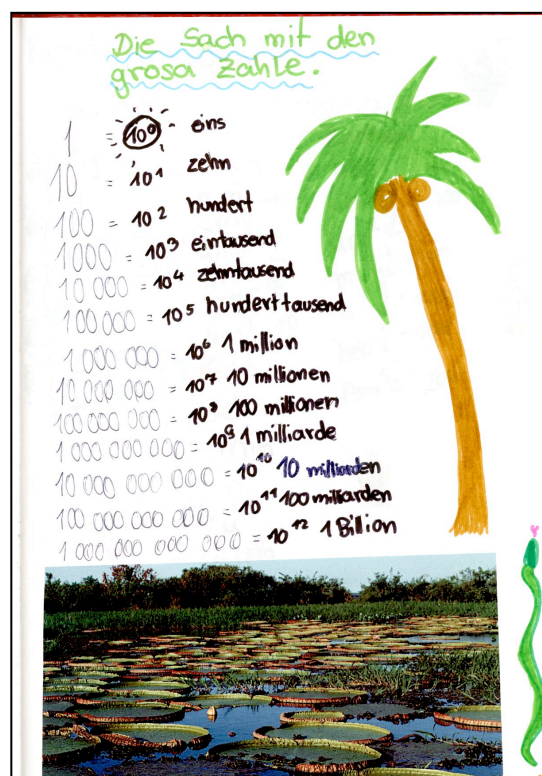 Die Sach mit den
grosa Zahle.
1 = 10⁰ eins
10 = 10¹ zehn
100 = 10² hundert
1000 = 10³ eintausend
10 000 = 10⁴ zehntausend
100 000 = 10⁵ hunderttausend
1 000 000 = 10⁶ 1 million
10 000 000 = 10⁷ 10 millionen
100 000 000 = 10⁸ 100 millionen
1 000 000 000 = 10⁹ 1 milliarde
10 000 000 000 = 10¹⁰ 10 milliarden
100 000 000 000 = 10¹¹ 100 milliarden
1 000 000 000 000 = 10¹² 1 Billion